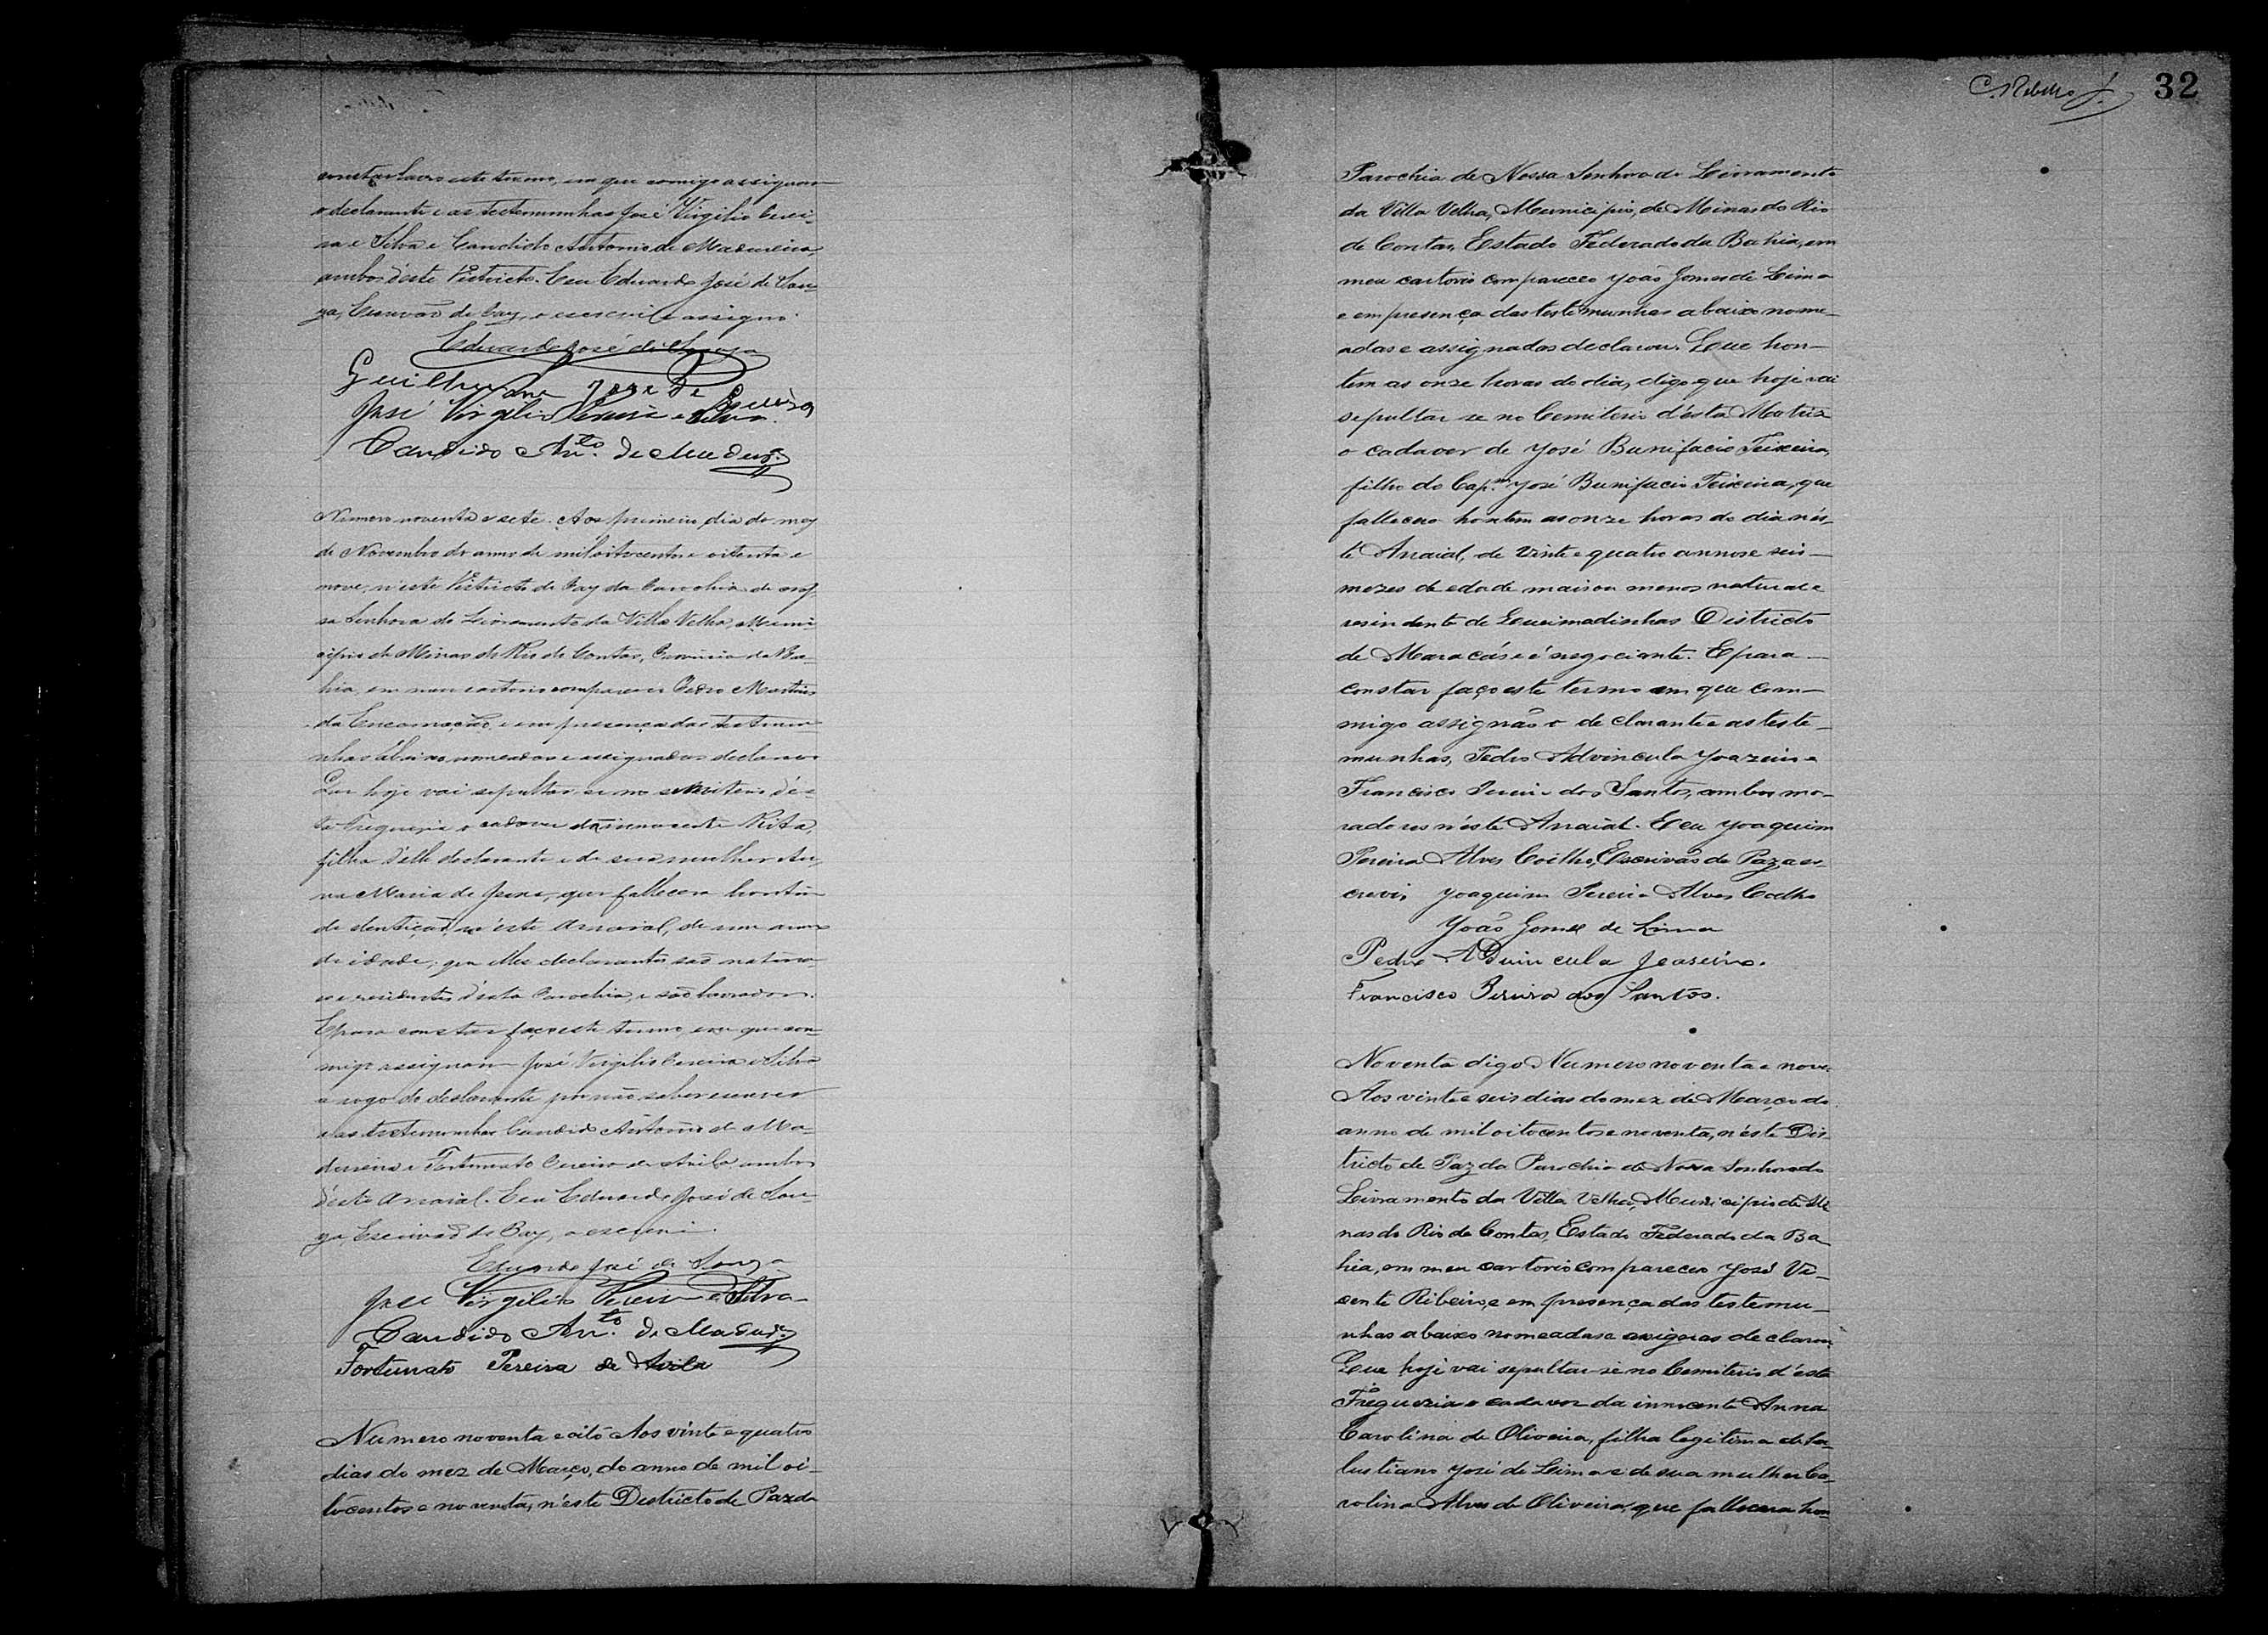 constar lavro este termo, em que comigo assignam
o declarante e as testemunhas José Virgilio Perei-
ra e Silva e Candido Antonio de Madureira,
ambos d'este Districto. Eu Eduardo José de Sou-
za, Escrivão de Paz, o escrevi e assigno.
Eduardo José de Souza
Guilherme José de
José Virgilio Pereira e Silva.
Candido An.to de Madur.ª
Numero noventa e sete. Aos primeiro dia do mez
de Novembro do anno de mil oitocentos e oitenta e
nove, n'este Districto de Paz da Parochia de Nos-
sa Senhora do Livramento da Villa Velha, Muni-
cipio de Minas do Rio de Contas, Provincia da Ba-
hia, em meu cartorio compareceo Pedro Martins
da Encarnação, e em presença das testemu-
nhas abaixo nomeadas e assignadas declarou
Que hoje vai sepultar-se no semiterio d'es-
ta Freguezia o cadaver da innocente Rita,
filha d'elle declarante e de sua mulher An-
na Maria de Jesus, que fallecera hontem
de dentição, n'este Arraial, de um anno
de idade; que elles declarantes são natura-
es e residentes d'esta Parochia, e são lavradores.
E para constar faço este termo, em que com-
migo assignam José Virgilio Pereira e Silva
a rogo do declarante por não saber escrever
e as testemunhas Candido Antonio de Ma-
dureira e Fortunato Pereira de Avila ambos
d'este Arraial. Eu Eduardo José de Sou-
za, Escrivão de Paz, o escrevi.
Eduardo José de Souza
José Virgilio Pereira e Silva
Candido An.to de Madur.ª
Fortunato Pereira de Avila
Numero noventa e oito Aos vinte e quatro
dias do mez de Março, do anno de mil oi-
tocentos e noventa, n'este Districto de Paz da
C. Rebello J. 32
Parochia de Nossa Senhora do Livramento
da Villa Velha, Municipio, de Minas do Rio
de Contas, Estado Federado da Bahia, em
meu cartorio compareceo João Gomes de Lima
e em presença das testemunhas abaixo nome-
adas e assignadas declarou. Que hon-
tem as onze horas do dia, digo que hoje vai
sepultar se no Cemiterio d'ésta Matriz
o cadaver de José Bunifacio Teixeira,
filho do Cap.m José Bunifacio Teixeira, que
falleceo hontem as onze horas do dia n'és-
te Arraial, de vinte e quatro annos e seis
mezes de edade mais ou menos natural e
resindente de Queimadinhas Districto
de Maracás e é negociante. E para
constar faço este termo em que com-
migo assignão o declarante e as teste-
munhas, Pedro Advincula Joazeiro e
Francisco Pereira dos Santos, ambos mo-
radores n'éste Arraial. E eu Joaquim
Pereira Alves Coêlho, Escrivão de Paz a es-
crevi. Joaquim Pereira Alves Coelho
João Gomes de Lima
Pedro ADvincula Joaseiro.
Francisco Pereira dos Santos.
Noventa digo Numero noventa e nove.
Aos vinte e seis dias do mez de Março do
anno de mil oitocentos e noventa, n'éste Dis
tricto de Paz da Parochia de Nossa Senhora do
Livramento da Villa Velha, Municipio de Mi
nas do Rio de Contas, Estado Federado da Ba
hia, em meu cartorio compareceo José Vi-
cente Ribeiro, e em presença das testemu-
nhas abaixo nomeadas e assignas declarou
Que hoje vai sepultar-se no Cemiterio d'ésta
Freguezia o cadaver da innocente Anna
Carolina de Oliveira, filha legitima de Sa-
lustiano José de Lima e de sua mulher Ca-
rolina Alves de Oliveira, que fallecera hon-